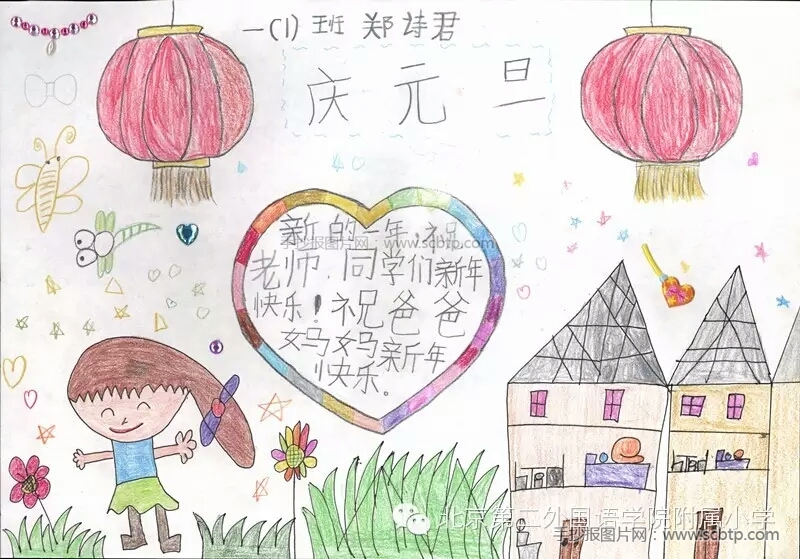 一(1) 班 郑诗君
庆 元 旦
新的一年,祝
手抄报图片网:www.scbtp.com
老师、同学们新年
快乐!祝爸爸
妈妈新年
快乐。
北京第二外国语学院附属小学
手抄报图片网:www.scbtp.com